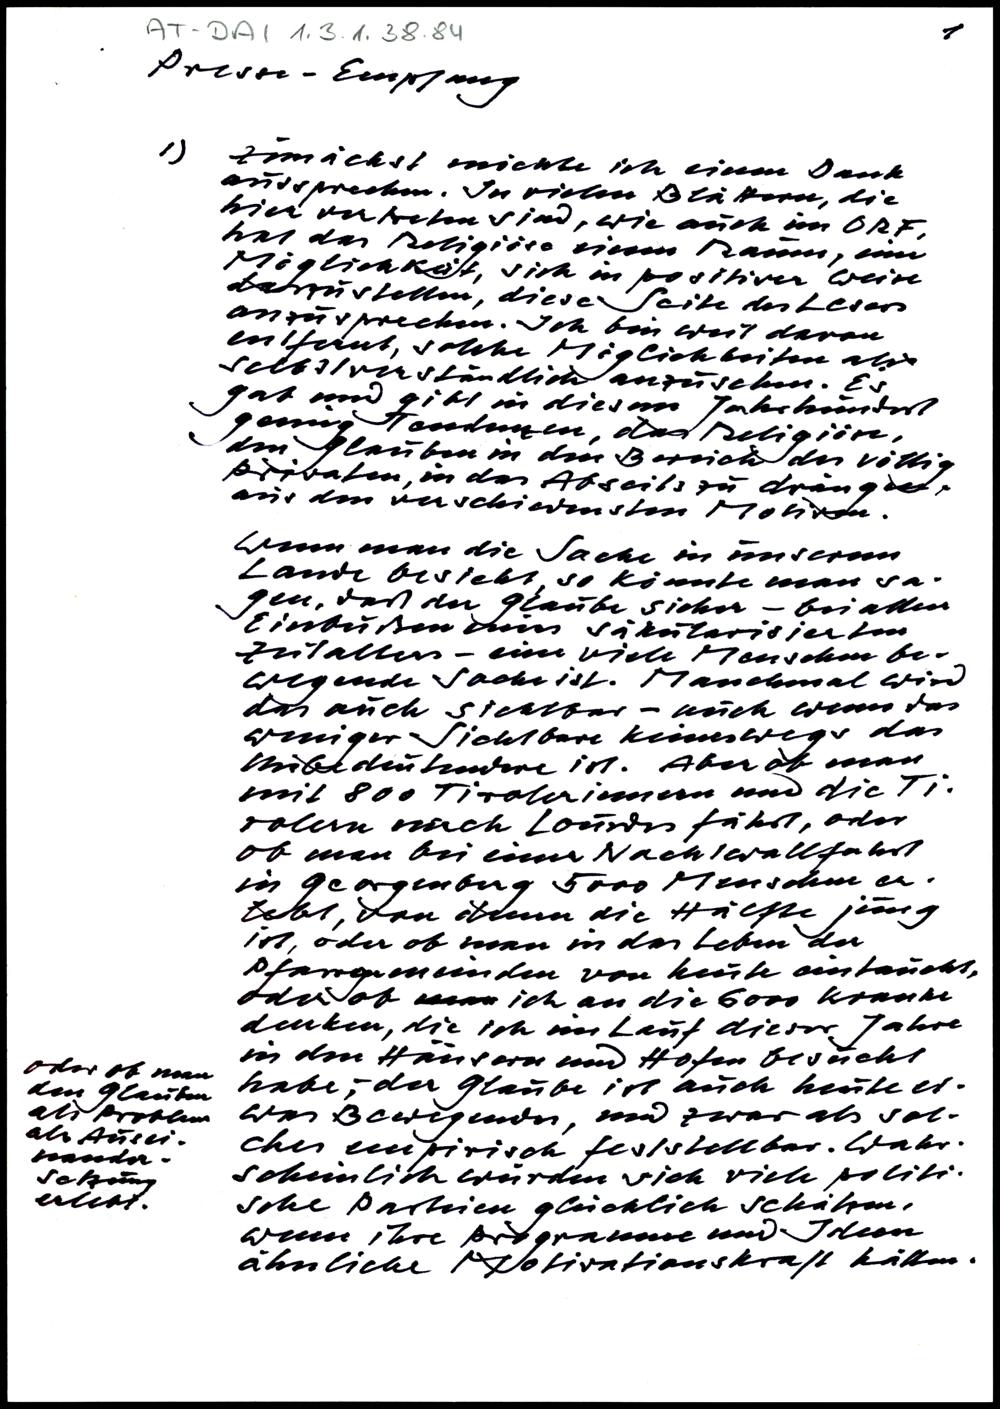 AT-DAI 1.3.1.38.84
1
Presse-Empfang
1) Zunächst möchte ich einen Dank
aussprechen. In vielen Blättern, die
hier vertreten sind, wie auch im ORF,
hat das Religiöse einen Raum, eine
Möglichkeit, sich in positiver Weise
darzustellen, diese Seite des Lesers
anzusprechen. Ich bin weit davon
entfernt, solche Möglichkeiten als
selbstverständlich anzusehen. Es
gab und gibt in diesem Jahrhundert
genug Tendenzen, das Religiöse,
den Glauben in den Bereich des völlig
Privaten, in das Abseits zu drängen,
aus den verschiedensten Motiven.
Wenn man die Sache in unserem
Lande besieht, so könnte man sa-
gen, daß der Glaube sicher – bei allen
Einbußen eines säkularisierten
Zeitalters – eine viele Menschen be-
wegende Sache ist. Manchmal wird
das auch sichtbar – auch wenn das
weniger Sichtbare keineswegs das
Unbedeutendere ist. Aber ob man
mit 800 Tirolerinnern und die Ti-
rolern nach Lourdes fährt, oder
ob man bei einer Nachtwallfahrt
in Georgenberg 5000 Menschen er-
lebt, von denen die Hälfte jung
ist, oder ob man in das Leben der
Pfarrgemeinden von heute eintaucht,
oder ob man ich an die 6000 Kranke
denken, die ich im Lauf dieser Jahre
in den Häusern und Höfen besucht
habe, – der Glaube ist auch heute et-
was Bewegendes, und zwar als sol-
ches empirisch feststellbar. Wahr-
scheinlich würden sich viele politi-
sche Parteien glücklich schätzen,
wenn ihre Programme und Ideen
ähnliche Motivationskraft hätten.
oder ob man
den Glauben
als Problem
als Ausei-
nander-
setzung
erlebt.